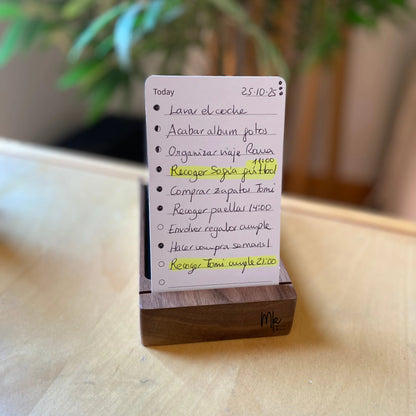 Today 25-10-25
Lavar el coche
Acabar album fotos
Organizar viaje Roma
11:00
Recoger Sofia fútbol
Comprar zapatos Tomi
Recoger paellas 14:00
Envolver regalos cumple
Hacer compra semanal
Recoger Tomi cumple 21:00